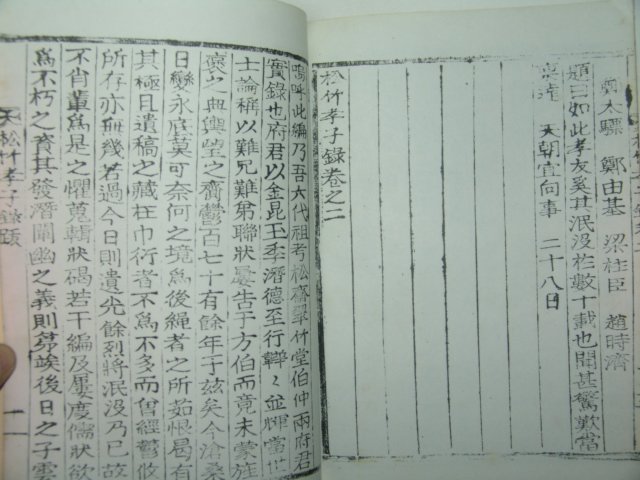 鄭大驃 鄭由基 梁柱臣 趙時濟
題曰如此孝友奚其泯沒於數十載也聞甚驚歎當
稟達 天朝宜向事 二十八日
松竹孝子錄卷之二
嗚呼此編乃吾六代祖考松齋翠竹堂伯仲兩府君
實錄也府君以金昆玉季潛德至行韡〻並輝當世
士論稱以難兄難弟聯狀屢告于方伯而竟未蒙旌
褒之典輿望之齎鬱百七十有餘年于玆矣今滄桑
日變永底莫可奈何之境爲後繩者之所茹恨曷有
其極且遺稿之藏在巾衍者不爲不多而曾經鬱攸
所存亦無幾若過今日則遺光餘烈將泯沒乃已故
不肖輩爲是之懼蒐輯狀碣若干編及屢度儒狀欲
爲不朽之資其發潛闡幽之義則姑竢後日之子雲
松竹孝子錄跋 一